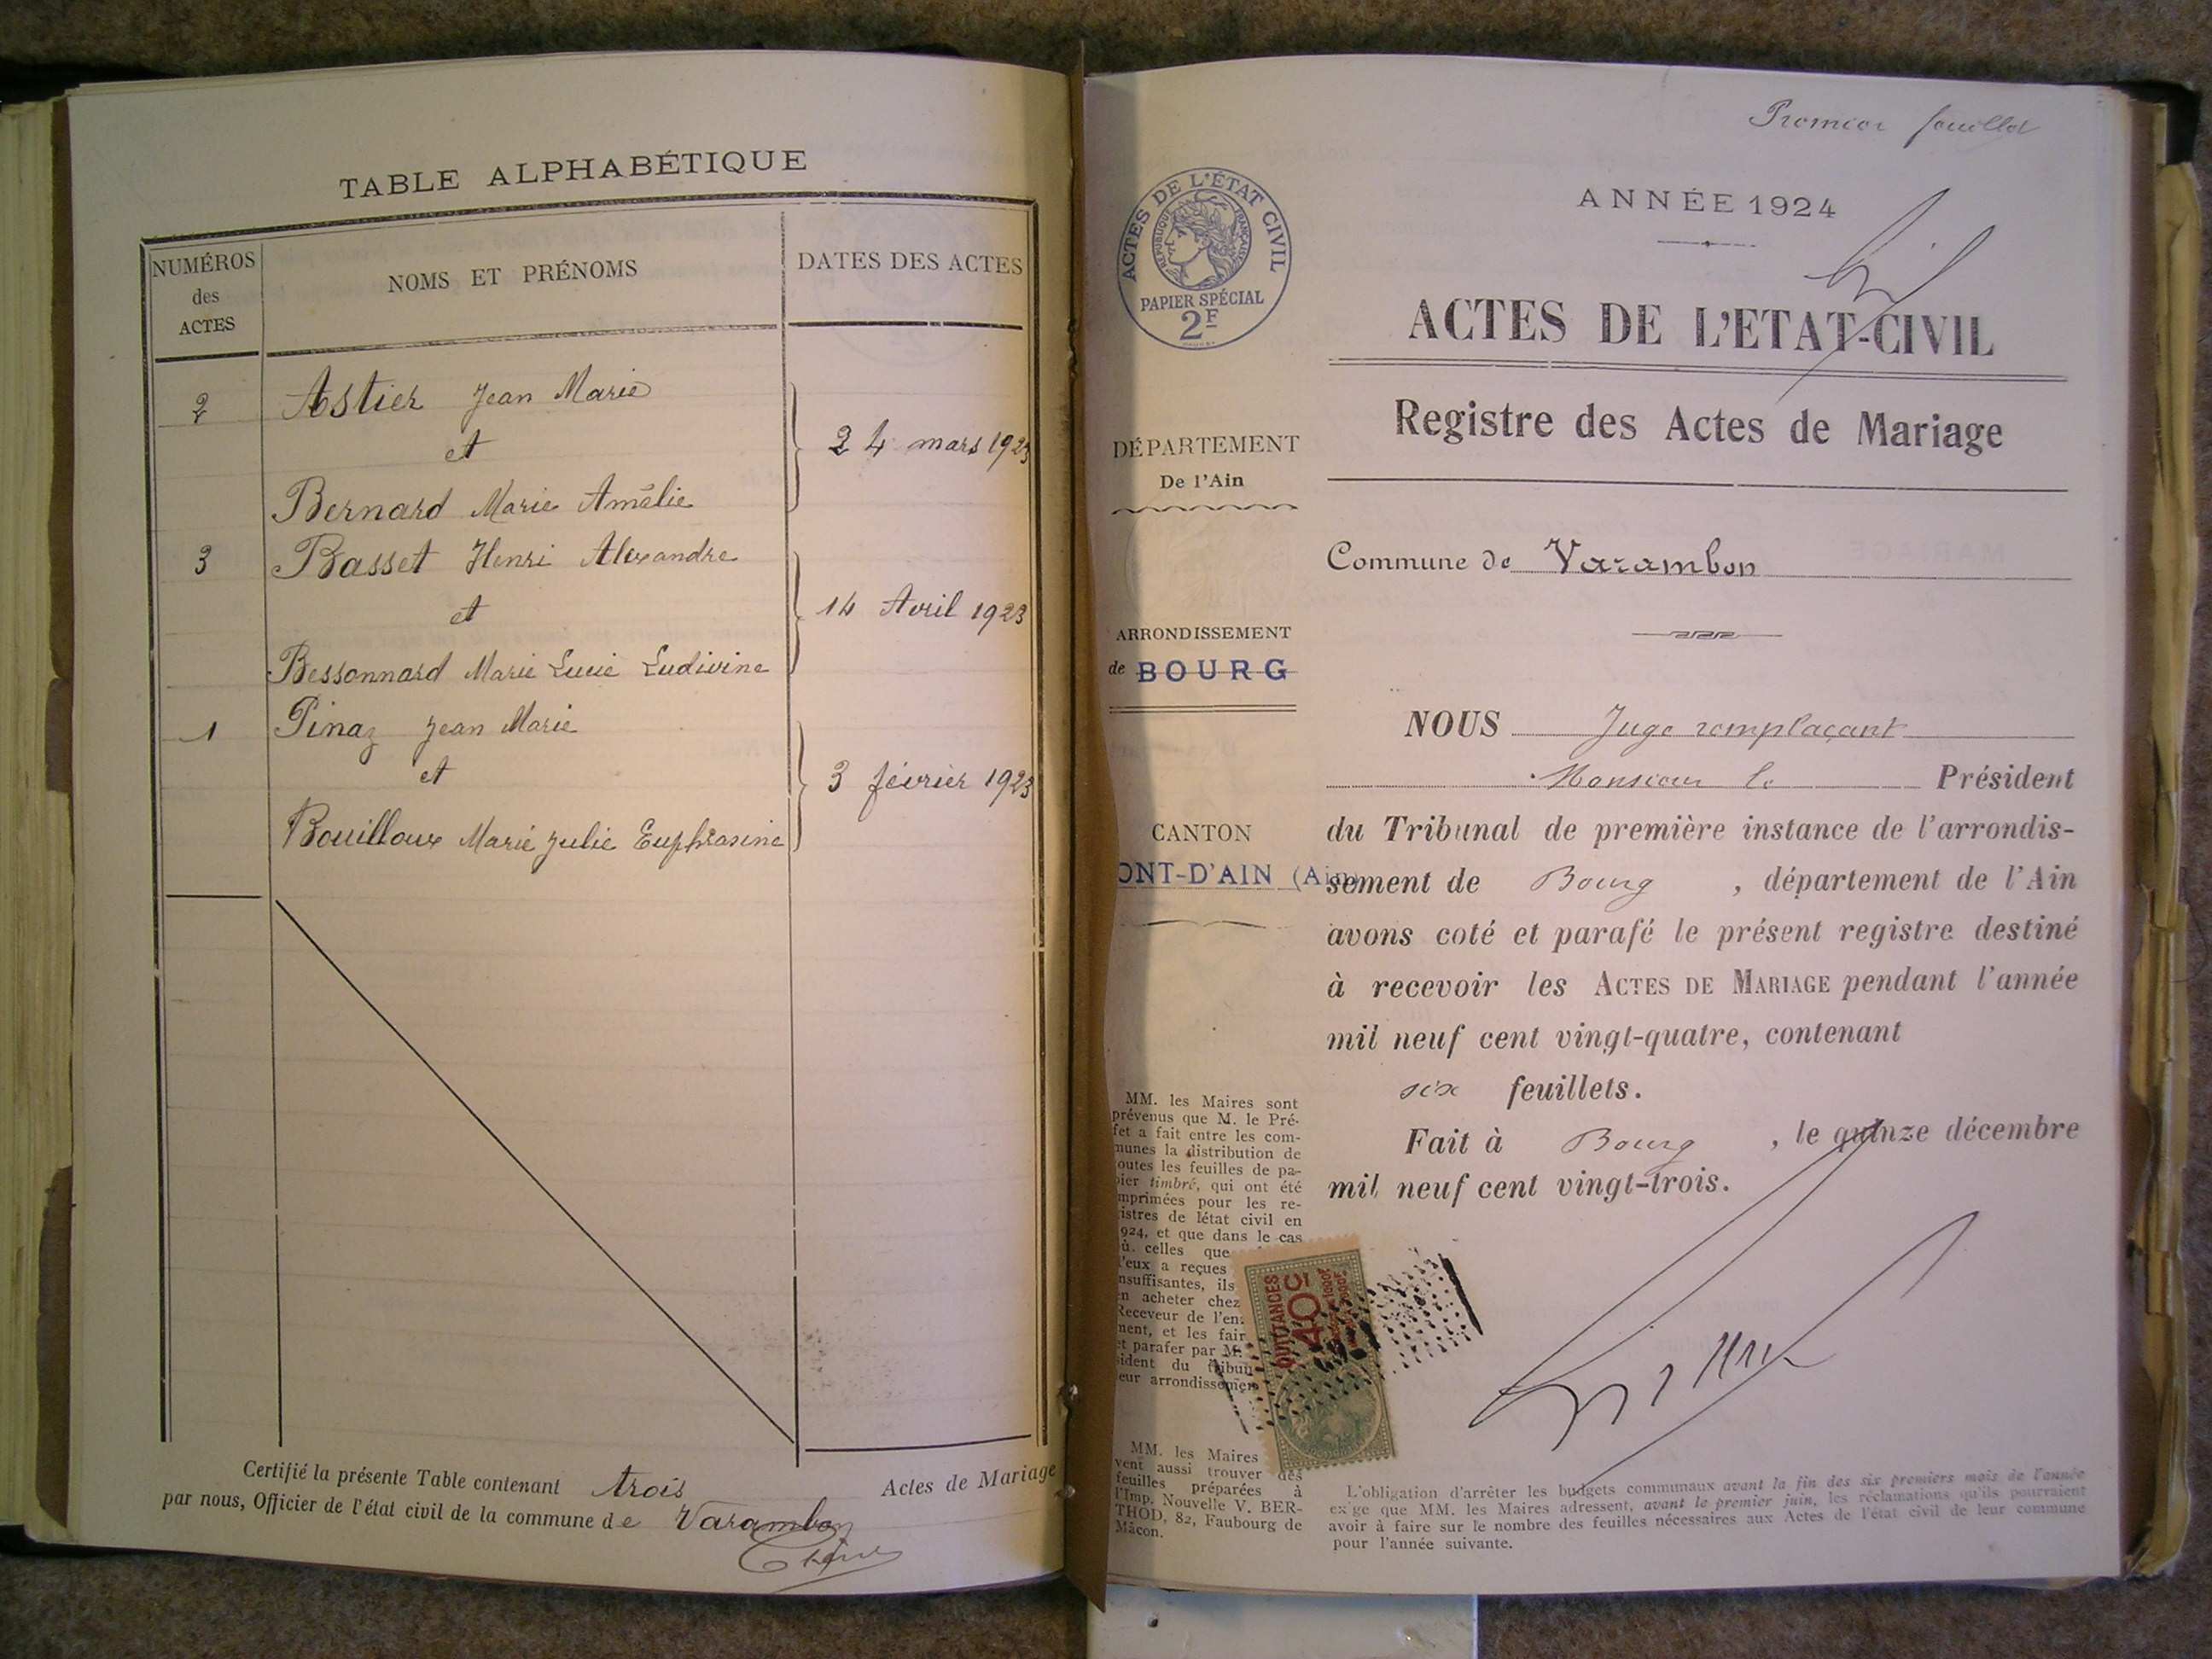 TABLE ALPHABÉTIQUE
NUMÉROS
des
ACTES
NOMS ET PRÉNOMS
DATES DES ACTES
2 Astier Jean Marie
et
24 mars 1923
Bernard Marie Amélie
3 Basset Henri Alexandre
et
14 Avril 1923
Bessonnard Marie Lucie Ludivine
1 Pinaz Jean Marie
et
3 février 1923
Bouilloux Marie Julie Euphrasine
Certifié la présente Table contenant trois Actes de Mariage
par nous, Officier de l'état civil de la commune de Varambon
Premier feuillet
ACTES DE L'ÉTAT CIVIL
RÉPUBLIQUE FRANÇAISE
PAPIER SPÉCIAL
2F
DÉPARTEMENT
De l'Ain
ARRONDISSEMENT
de BOURG
CANTON
ONT-D'AIN (Ain)
MM. les Maires sont
prévenus que M. le Pré-
fet a fait entre les com-
munes la distribution de
outes les feuilles de pa-
pier timbré, qui ont été
mprimées pour les re-
istres de létat civil en
924, et que dans le cas
ù. celles que
l'eux a reçues
nsuffisantes, ils
en acheter chez
Receveur de l'en.
ment, et les fair
et parafer par M.
sident du tribun
eur arrondissemen
QUITTANCES
40c
MM. les Maires
vent aussi trouver des
feuilles préparées à
l'Imp. Nouvelle V. BER-
THOD, 82, Faubourg de
Mâcon.
ANNÉE 1924
ACTES DE L'ETAT-CIVIL
Registre des Actes de Mariage
Commune de Varambon
NOUS Juge remplaçant
Monsieur le Président
du Tribunal de première instance de l'arrondis-
sement de Bourg , département de l'Ain
avons coté et parafé le présent registre destiné
à recevoir les ACTES DE MARIAGE pendant l'année
mil neuf cent vingt-quatre, contenant
six feuillets.
Fait à Bourg , le quinze décembre
mil neuf cent vingt-trois.
L'obligation d'arrêter les budgets communaux avant la fin des six premiers mois de l'année
exige que MM. les Maires adressent, avant le premier juin, les réclamations qu'ils pourraient
avoir à faire sur le nombre des feuilles nécessaires aux Actes de l'état civil de leur commune
pour l'année suivante.